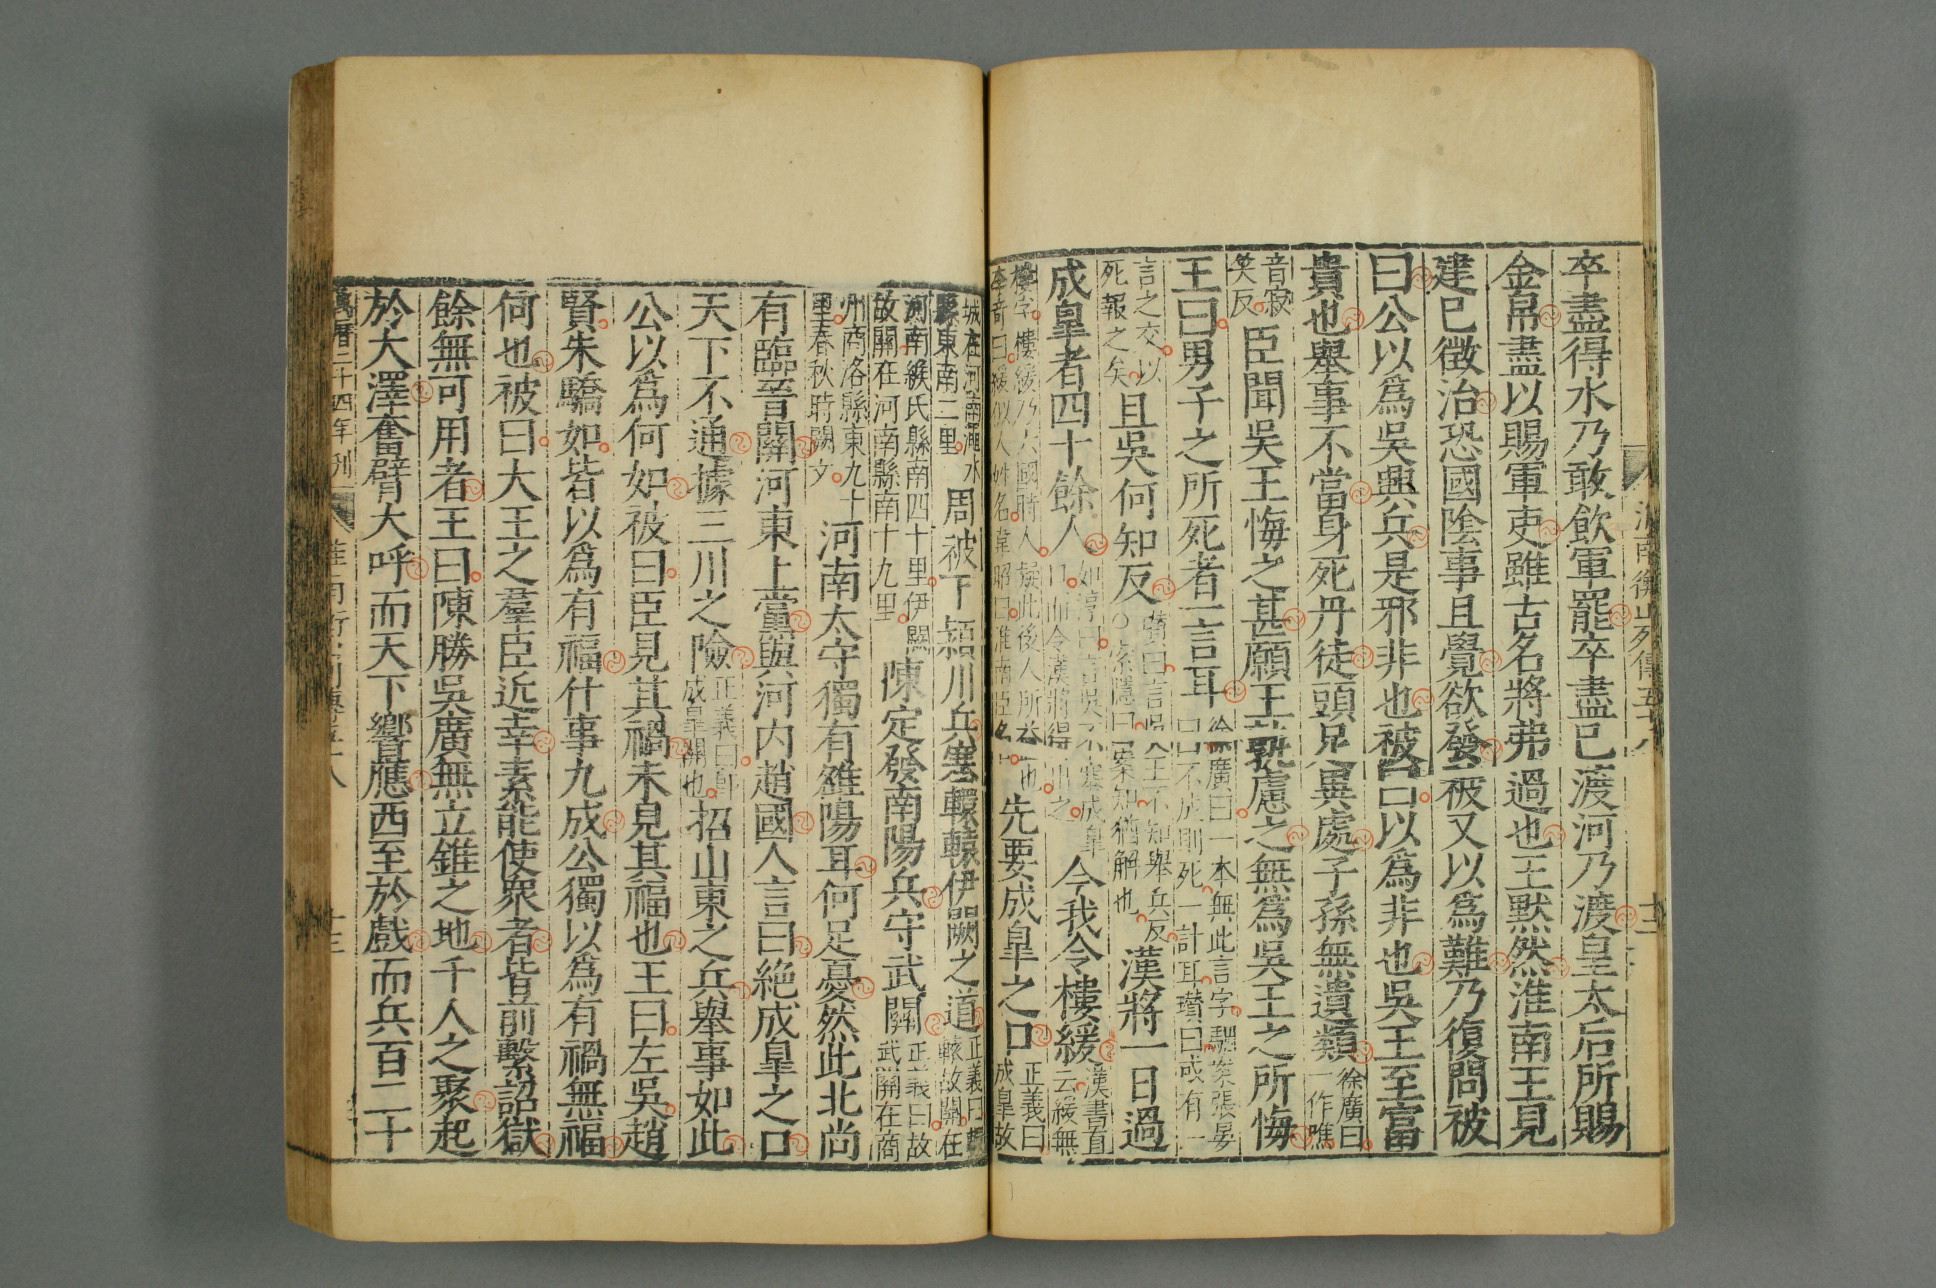 卒盡得水乃敢飲軍罷卒盡已渡河乃渡皇太后所賜
金帛盡以賜軍吏雖古名將弗過也王默然淮南王見
建已徵治恐國陰事且覺欲發被又以爲難乃復問被
曰公以爲吳興兵是邪非也被曰以爲非也吳王至富
貴也舉事不當身死丹徒頭足異處子孫無遺類徐廣曰一作噍
音寂笑反臣聞吳王悔之甚願王孰慮之無爲吳王之所悔
王曰男子之所死者一言耳徐廣曰一本無此言字駰案張晏曰不成則死一計耳瓚曰或有一
言之交以死報之矣且吳何知反瓚曰言吳王不知舉兵反索隱曰案知猶解也漢將一日過
成皐者四十餘人如淳曰言吳不塞成皐口而令漢將得出之今我令樓緩漢書直云緩無
樓字樓緩乃六國時人疑此後人所益也李奇曰緩似人姓名韋昭曰淮南臣名先要成皐之口正義曰成皐故
城在河南汜水縣東南二里周被下潁川兵塞轘轅伊闕之道正義曰轘轅故關在
河南緱氏縣南四十里伊闕故關在河南縣南十九里陳定發南陽兵守武關正義曰故武關在商
州商洛縣東九十里春秋時闕文河南太守獨有雒陽耳何足憂然此北尚
有臨晉關河東上黨與河內趙國人言曰絶成皐之口
天下不通據三川之險正義曰即成皐關也招山東之兵舉事如此
公以爲何如被曰臣見其禍未見其福也王曰左吳趙
賢朱驕如皆以爲有福什事九成公獨以爲有禍無福
何也被曰大王之羣臣近幸素能使衆者皆前繫詔獄
餘無可用者王曰陳勝吳廣無立錐之地千人之聚起
於大澤奮臂大呼而天下響應西至於戲而兵百二十
萬曆二十四年刊
十三